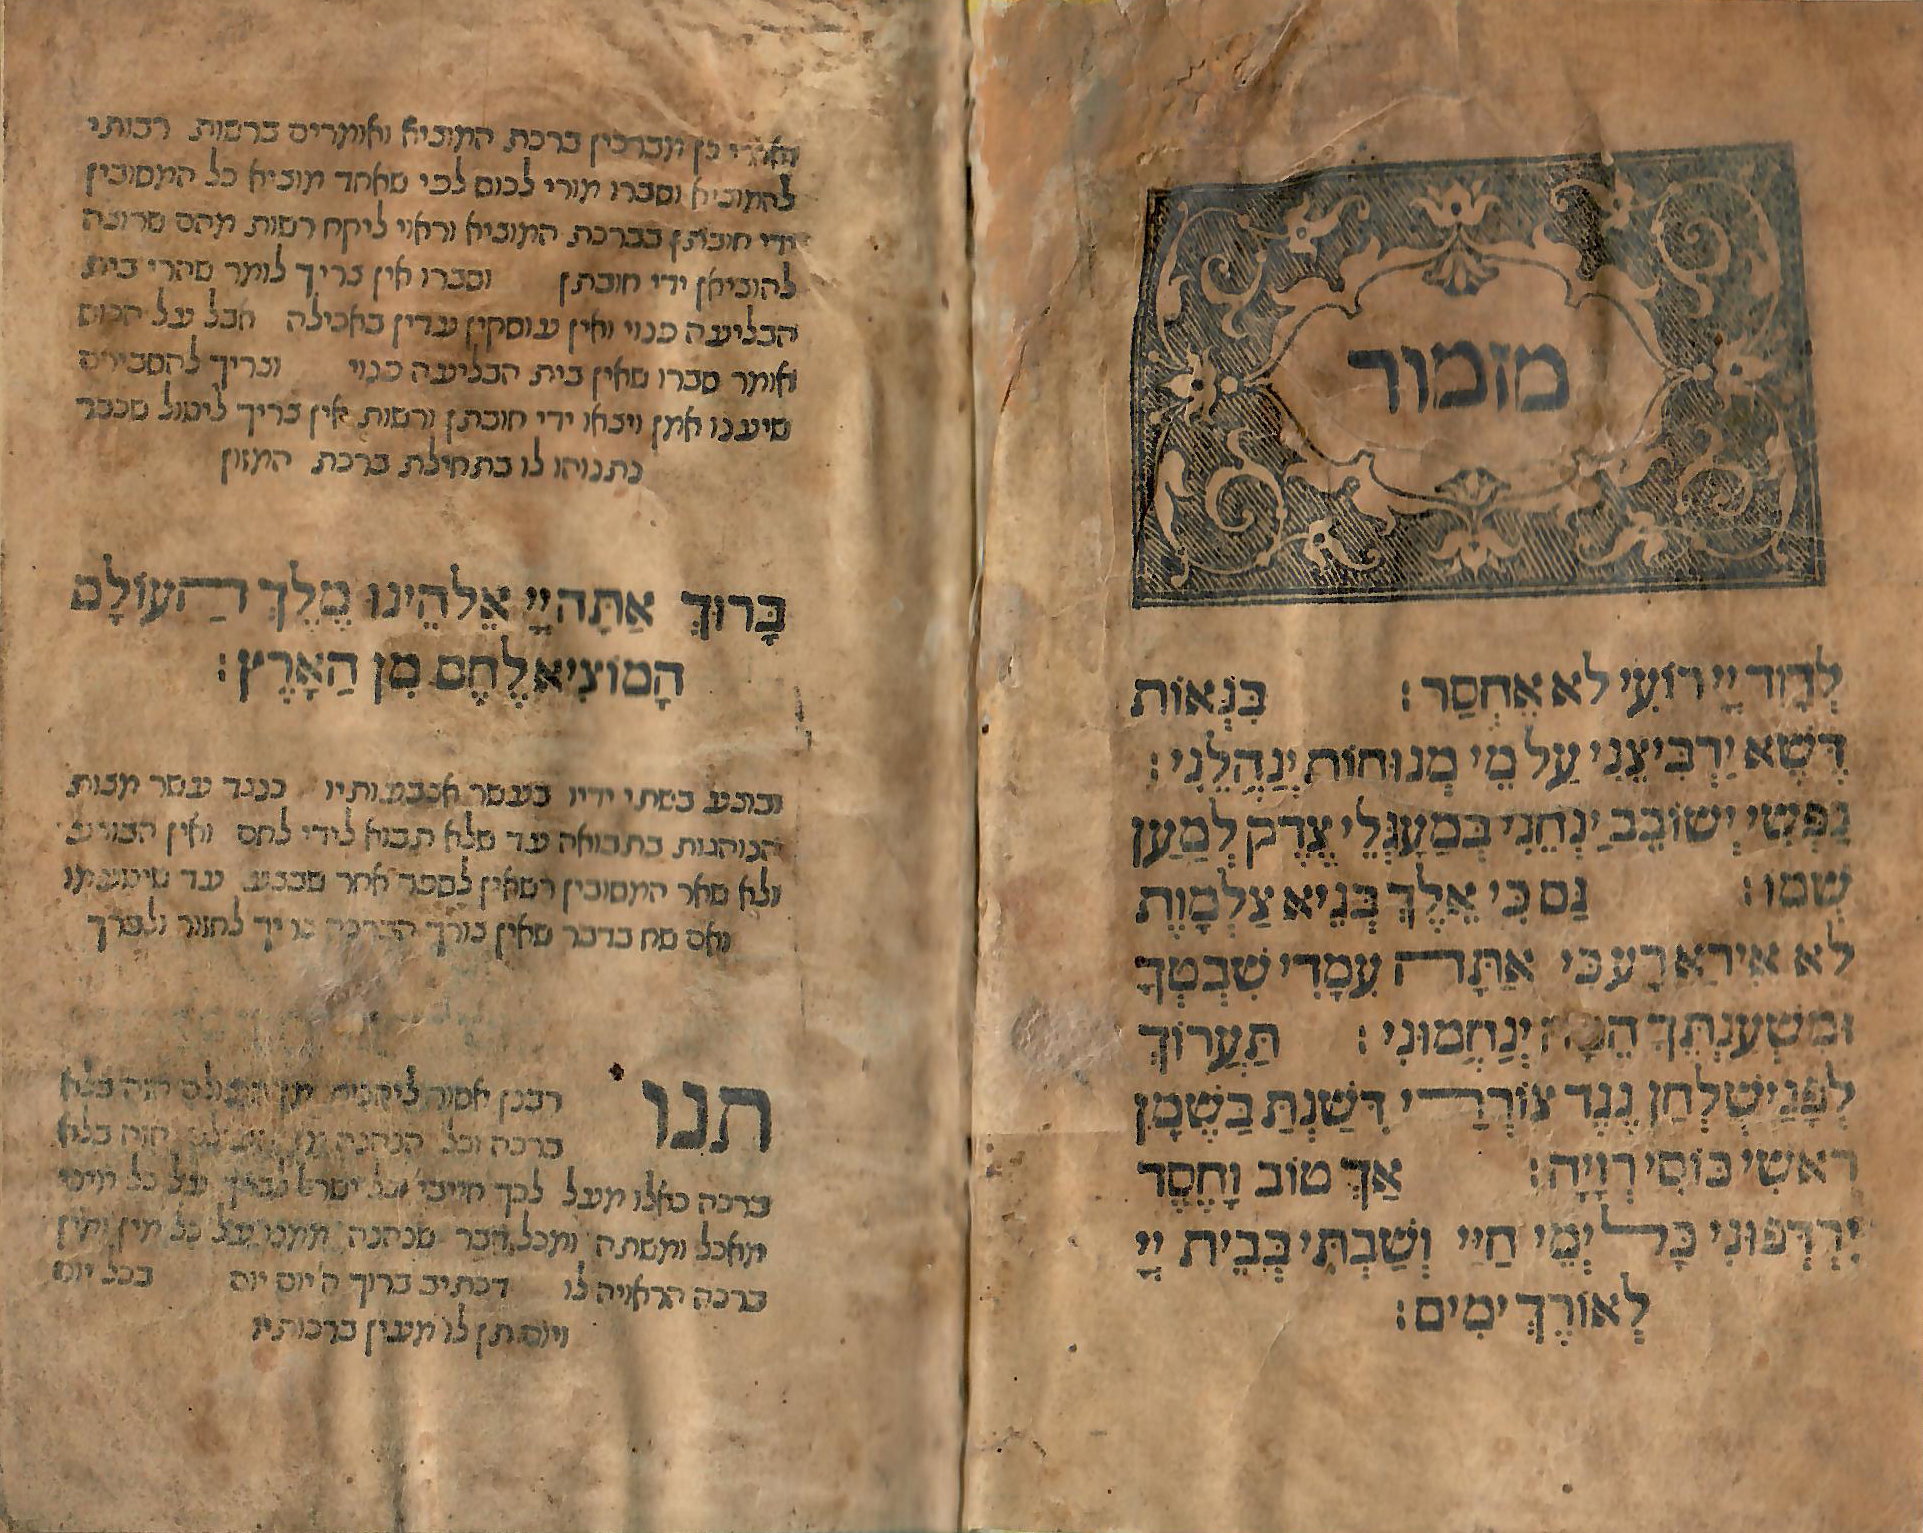 מזמור
לְדָוִד יְיָ רוֹעִי לֹא אֶחְסַר: בִּנְאוֹת
דֶּשֶׁא יַרְבִּיצֵנִי עַל מֵי מְנוּחוֹת יְנַהֲלֵנִי:
נַפְשִׁי יְשׁוֹבֵב יַנְחֵנִי בְּמַעְגְּלֵי צֶדֶק לְמַעַן
שְׁמוֹ: גַּם כִּי אֵלֵךְ בְּגֵיא צַלְמָוֶת
לֹא אִירָא רָע כִּי אַתָּה עִמָּדִי שִׁבְטְךָ
וּמִשְׁעַנְתֶּךָ הֵמָּה יְנַחֲמוּנִי: תַּעֲרוֹךְ
לְפָנַי שֻׁלְחָן נֶגֶד צוֹרְרָי דִּשַּׁנְתָּ בַשֶּׁמֶן
רֹאשִׁי כּוֹסִי רְוָיָה: אַךְ טוֹב וָחֶסֶד
יִרְדְּפוּנִי כָּל יְמֵי חַיַּי וְשַׁבְתִּי בְּבֵית יְיָ
לְאוֹרֶךְ יָמִים:
ואחרי כן מברכין ברכת המוציא ואומרים ברשות רבותי
להמוציא וסברו מורי לכוס לפי שאחד מוציא כל המסובין
ידי חובתן בברכת המוציא וראוי ליקח רשות מהם שרוצה
להוציאן ידי חובתן וסברו אין צריך לומר שהרי בית
הבליעה פנוי ואין עוסקין עדיין באכילה אבל על הכוס
אומר סברו שאין בית הבליעה פנוי וצריך להסבירם
שיענו אמן ויצאו ידי חובתן ורשות אין צריך ליטול שכבר
נתנוהו לו בתחילת ברכת המזון
בָּרוּךְ אַתָּה יְיָ אֱלֹהֵינוּ מֶלֶךְ הָעוֹלָם
הַמּוֹצִיא לֶחֶם מִן הָאָרֶץ:
ובוצע בשתי ידיו בעשר אצבעותיו כנגד עשר מצות
הנוהגות בתבואה עד שלא תבוא לידי לחם ואין הבוצע
ולא שאר המסובין רשאין לספר אחר שבצע עד שיטעמו
ואם סח בדבר שאין צורך הברכה צריך לחזור ולברך
תנו רבנן אסור ליהנות מן העולם הזה בלא
ברכה וכל הנהנה מן העולם הזה בלא
ברכה כאלו מעל לכך חייבי כל ישראל לברך על כל מיני
מאכל ומשתה ומכל דבר שנהנה ממנו על כל מין ומין
ברכה הראויה לו דכתיב ברוך ה' יום יום בכל יום
ויום תן לו מעין ברכותיו